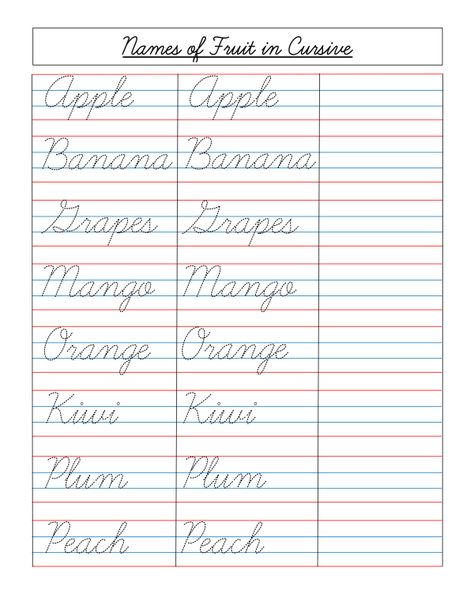 Names of Fruit in Cursive
Apple Apple
Banana Banana
Grapes Grapes
Mango Mango
Orange Orange
Kiwi Kiwi
Plum Plum
Peach Peach